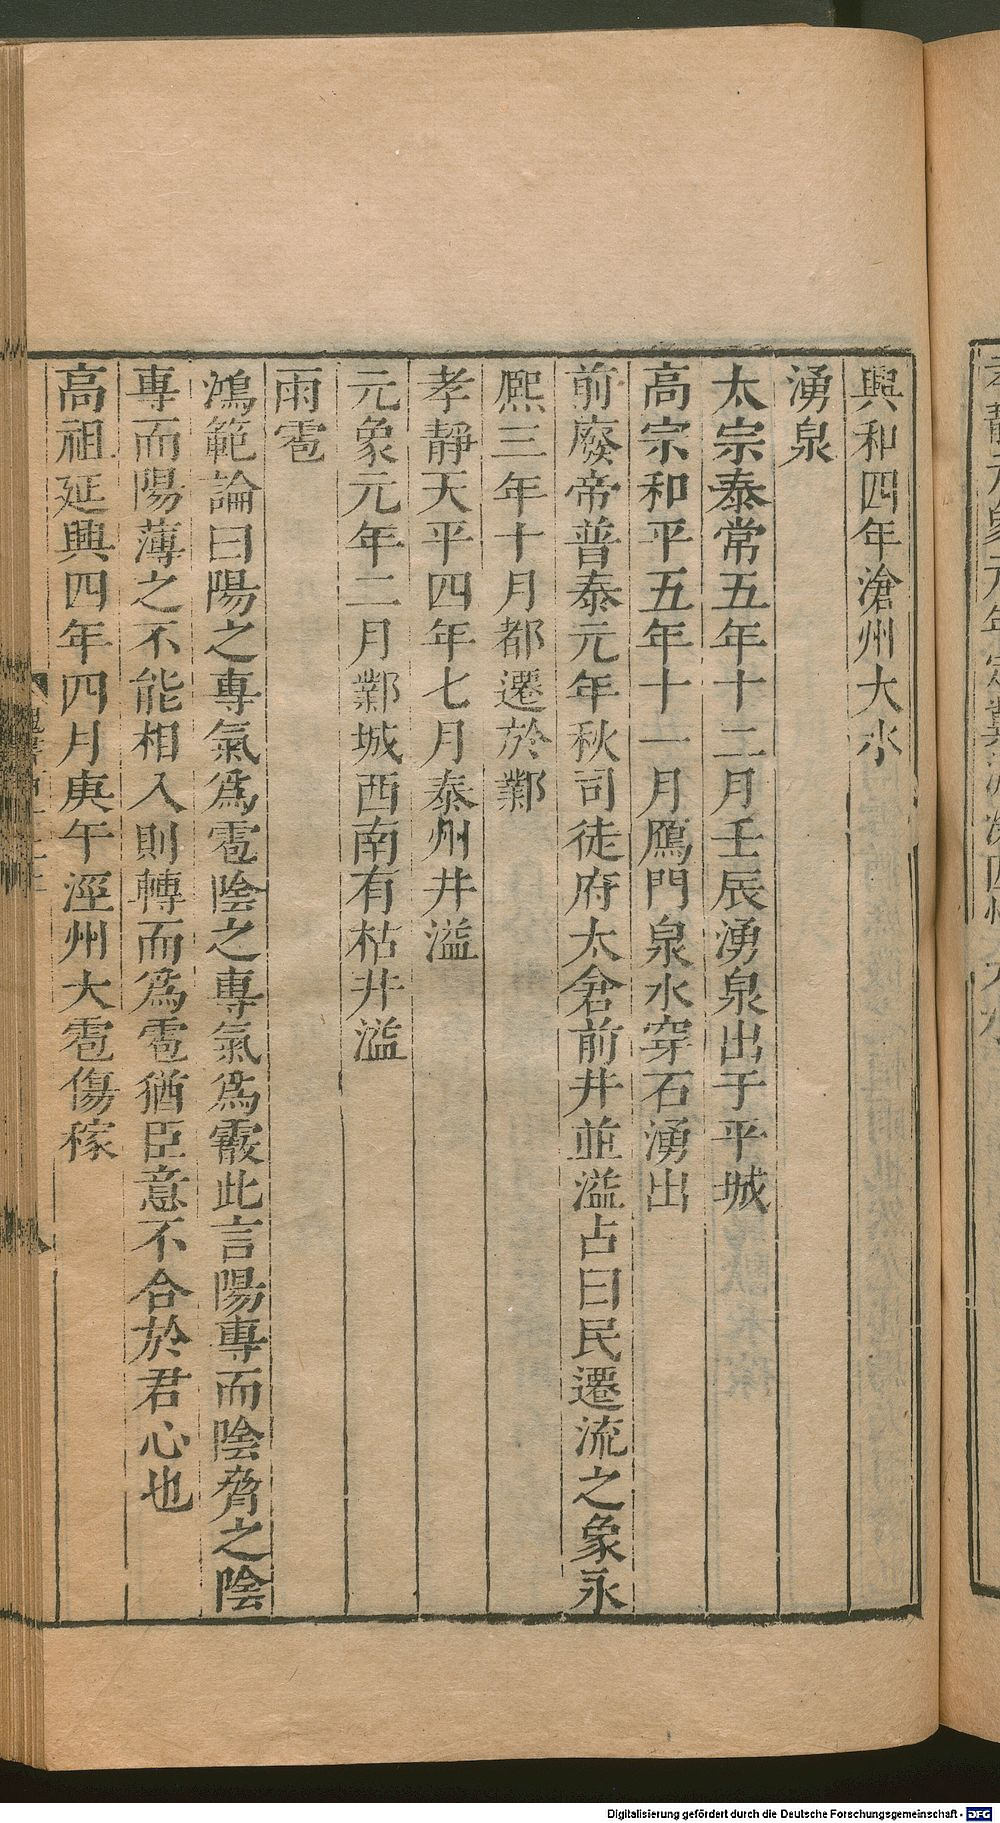 興和四年滄州大水
湧泉
太宗泰常五年十二月壬辰湧泉出于平城
高宗和平五年十一月鴈門泉水穿石湧出
前廢帝普泰元年秋司徒府太倉前井並溢占曰民遷流之象永
熈三年十月都遷於鄴
孝靜天平四年七月泰州井溢
元象元年二月鄴城西南有枯井溢
雨雹
鴻範論曰陽之專氣爲雹陰之專氣爲霰此言陽專而陰脅之陰
專而陽薄之不能相入則轉而爲雹猶臣意不合於君心也
高祖延興四年四月庚午涇州大雹傷稼
Digitalisierung gefördert durch die Deutsche Forschungsgemeinschaft - DFG